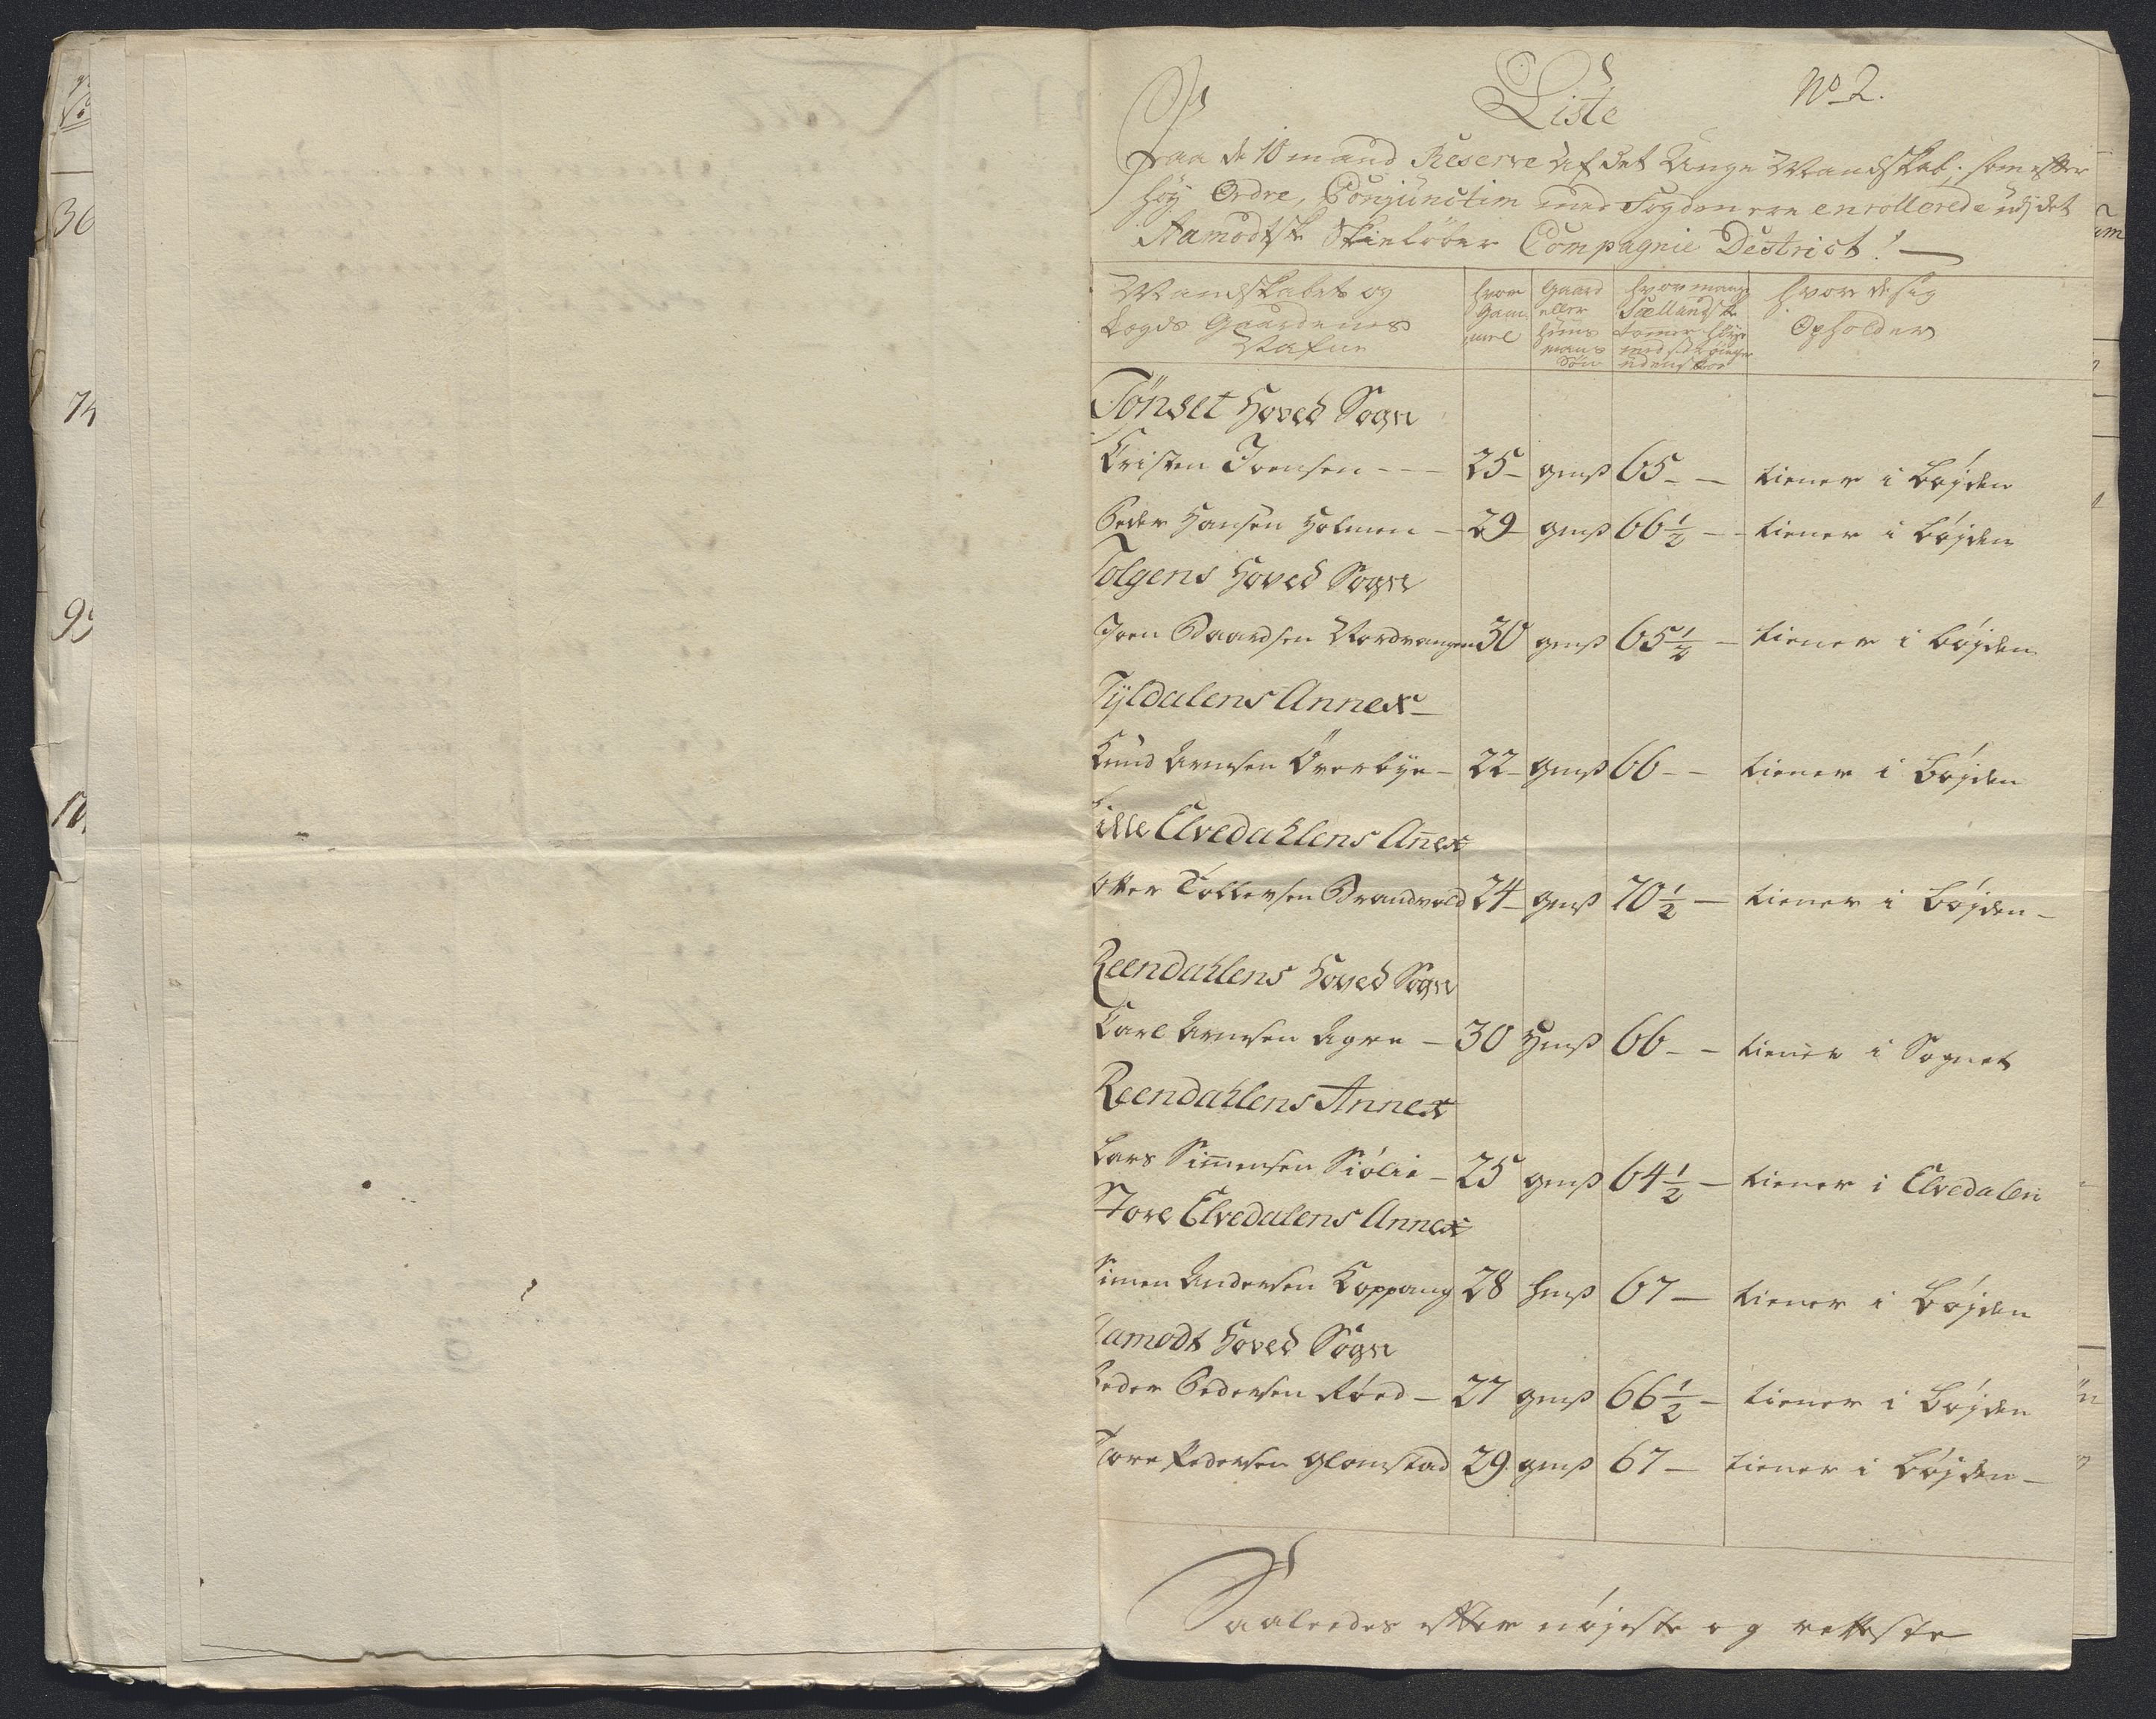 Liste
No 2.
Paa de 10 mand Reserve Af det Unge Mandskab, som efter
høy Ordre, Conjunctim med Fogden ere enrollerede udj det
Aamodtske Skieløber Compagnie Destrict!
Mandskabets og
Logds Gaardenes
Nafne
hvor
Gam
mel
Gaard
eller
huus
mans
Søn
hvor mange
Sællandske
tomer høye
med
uden skoe
hvor de sig
Opholder
Tønset Hoved Sogn
Cristen Joensen --- 25 - gmß 65 - - tiener i bøjden
Peder Hansen Holmen - 29 gmß 66 1/2 - - tiener i bøjden
Tolgens Hoved Sogn
Joen Baardsen Nordvangen 30 gmß 65 1/2 - tiener i bøjden
Tyldalens Annex -
Knud Arnesen Øverbye - 22 - gmß 66 - - tiener i bøjden
Lille Elvedahlens Anex
Otter Tollevsen Brandvold 24 - gmß 70 1/2 - tiener i bøjden -
Reendahlens Hoved Sogn
Carl Arnesen Agre - 30 Hmß 66 - - tiener i Sognet
Reendahlens Annex
Lars Simensen Siølie - 25 gmß 64 1/2 - tiener i Elvedalen
Store Elvedalens Annex
Simen Andersen Koppang 28 hmß 67 - tiener i bøjden
Aamodt Hoved Sogn
Peder Pedersen Røed - 27 gmß 66 1/2 - tiener i bøjden
Tore Pedersen Glomstad 29 gmß 67 - tiener i bøjden -
Saaleedes efter nøjeste og retteste